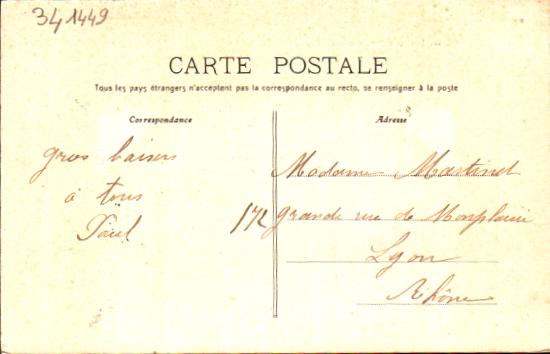 341449
CARTE POSTALE
Tous les pays étrangers n'acceptent pas la correspondance au recto, se renseigner à la poste
Correspondance
Adresse
gros baisers
à tous
Paul
Madame Martinet
172 grande rue de Monplaisir
Lyon
Rhône